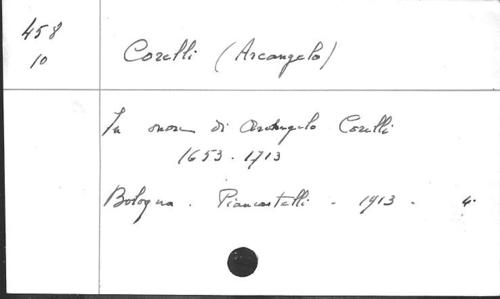 458
10
Corelli (Arcangelo)
In onore di Archangelo Corelli
1653-1713
Bologna. Piancastelli - 1913 - 4.